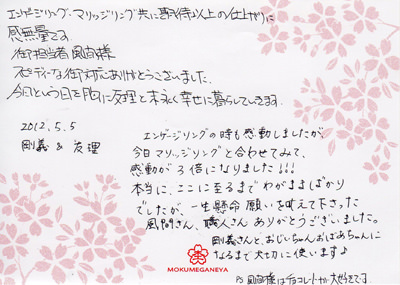 エンゲージリング、マリッジリング共に期待以上の仕上がりに
感無量です。
御担当者 風間様
スピーディーな御対応ありがとうございました。
今日という日を胸に友理と末永く幸せに暮らしていきます。
2012.5.5
剛義 & 友理
エンゲージリングの時も感動しましたが、
今日マリッジリングと合わせてみて、
感動が3倍になりました!!!
本当に、ここに至るまでわがままばかり
でしたが、一生懸命願いを叶えて下さった
風間さん、職人さんありがとうございました。
剛義さんと、おじいちゃんおばあちゃんに
なるまで大切に使います♪
MOKUMEGANEYA
PS 風間様はチョコレートが大好きです